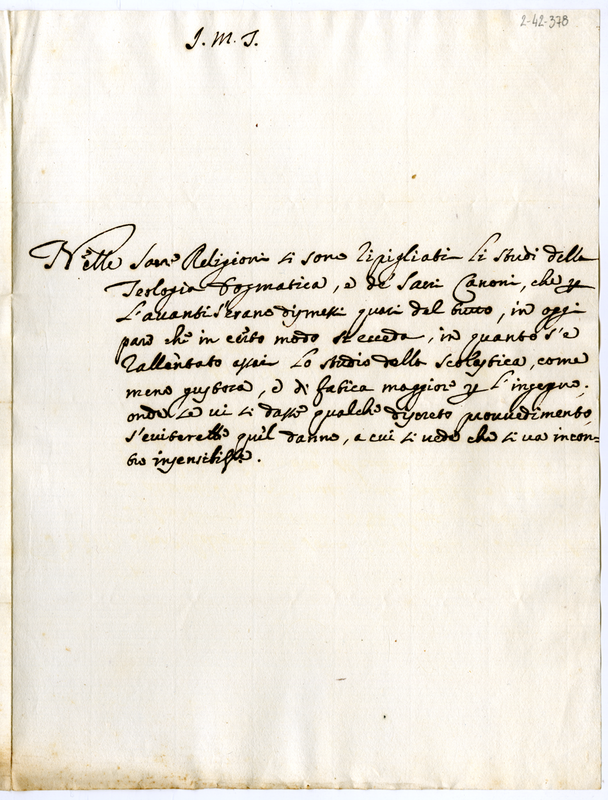 2-42-378
J. M. J.
Nelle Sacre Religioni si sono ripigliati li studi della
Teologia Dogmatica, e de' Sacri Canoni, che
l'avanti s'erano dismessi quasi del tutto, in oggi
pare che in certo modo si ecceda, in quanto s'è
rallentato assai lo studio della scolastica, come
meno gustosa, e di fatica maggiore l'ingegno;
onde se vi si dasse qualche discreto provvedimento,
s'evitarebbe quel danno, a cui si vede che si va incon=
tro insensibilmte.